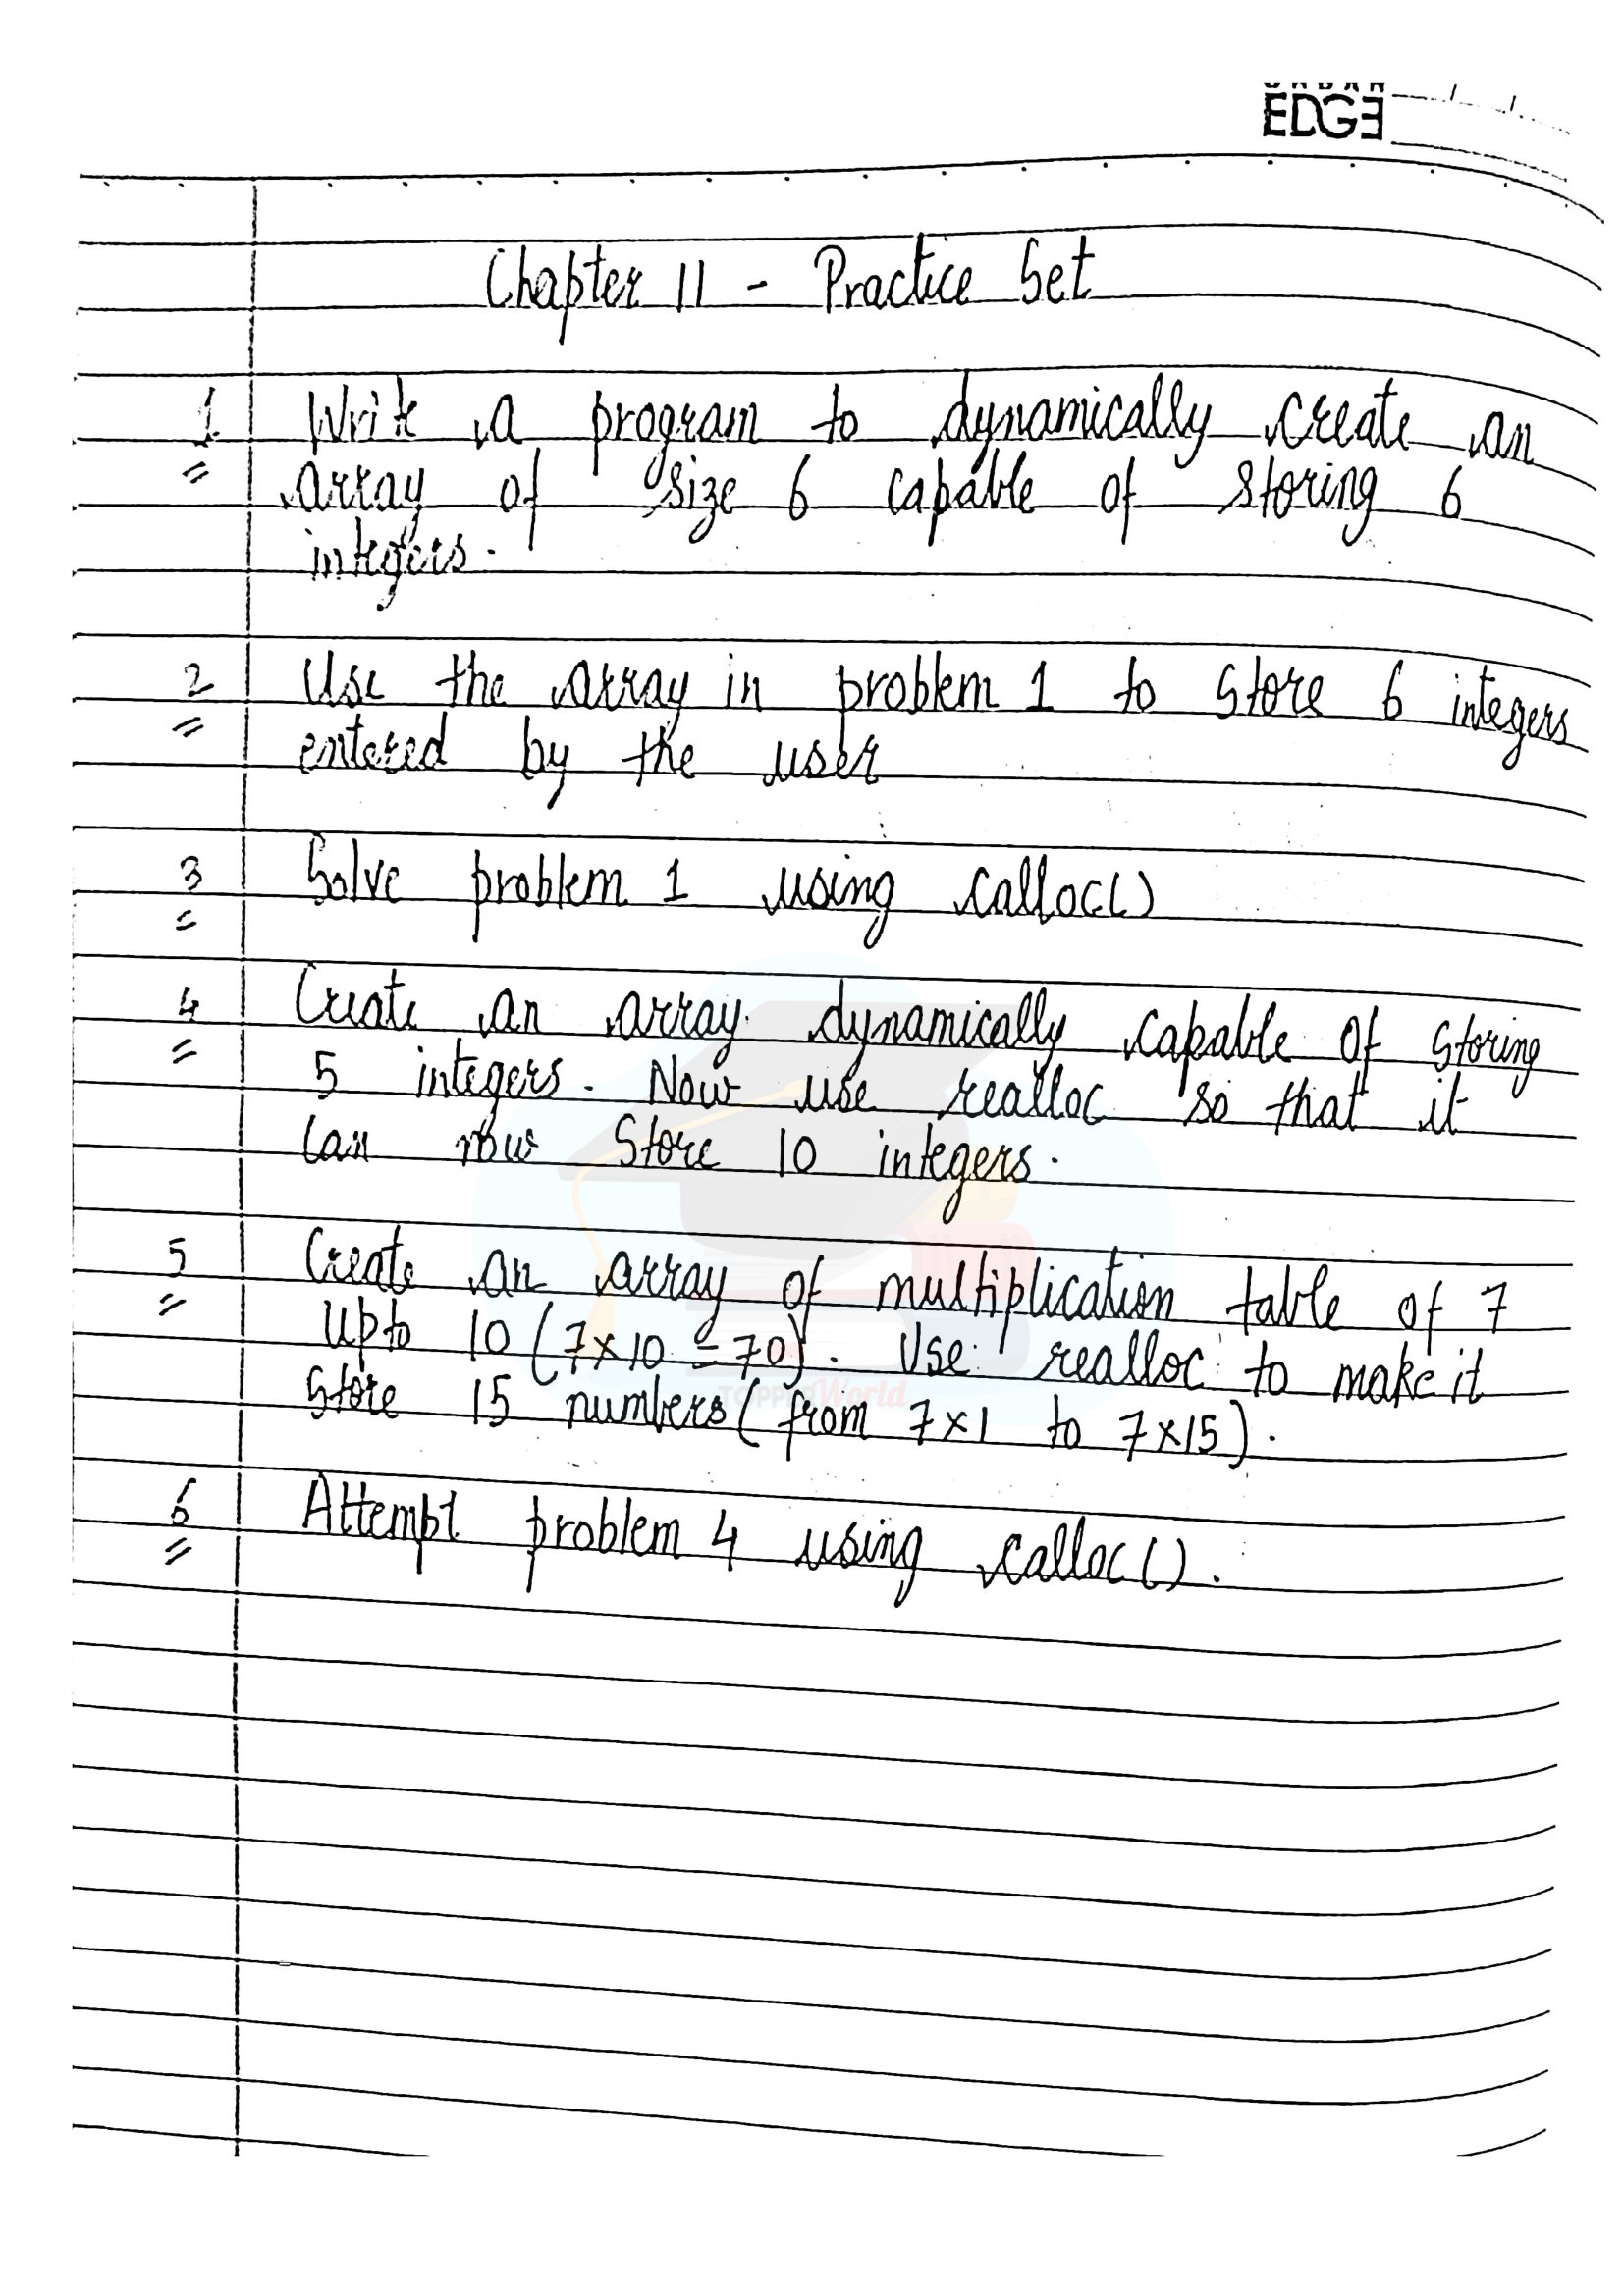 EDGE
Chapter 11 - Practice Set
1 Write a program to dynamically create an
array of size 6 capable of storing 6
integers.
2 Use the array in problem 1 to store 6 integers
entered by the user
3 Solve problem 1 using calloc()
4 Create an array dynamically capable of storing
5 integers. Now use realloc so that it
can now store 10 integers.
5 Create an array of multiplication table of 7
upto 10 (7x10 = 70). Use realloc to make it
store 15 numbers (from 7x1 to 7x15).
TOPPERWorld
6 Attempt problem 4 using calloc().